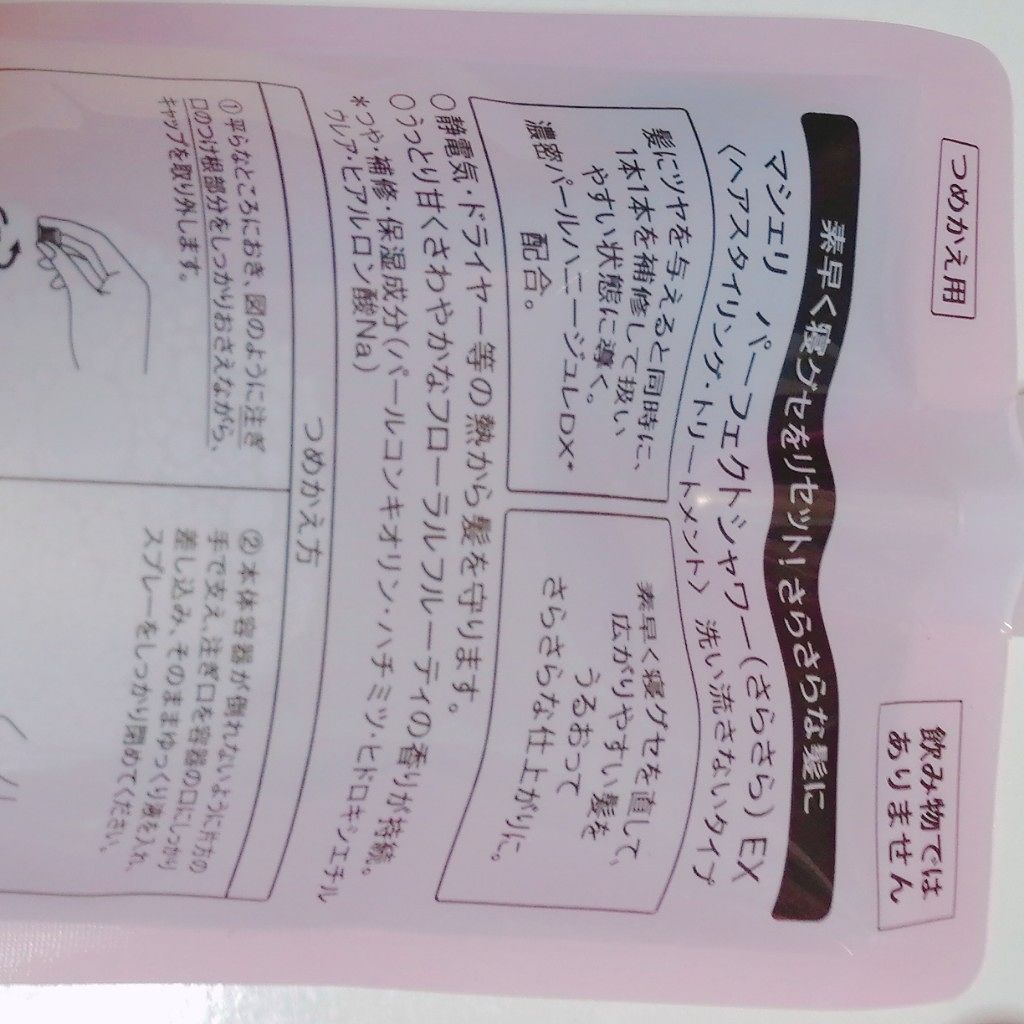 つめかえ用
飲み物では
ありません
素早く寝グセをリセット!さらさらな髪に
マシェリ パーフェクトシャワー(さらさら)EX
〈ヘアスタイリング・トリートメント〉洗い流さないタイプ
髪にツヤを与えると同時に、
1本1本を補修して扱い
やすい状態に導く。
濃密パールハニージュレDX*
配合。
素早く寝グセを直して、
広がりやすい髪を
うるおって
さらさらな仕上がりに。
○静電気・ドライヤー等の熱から髪を守ります。
○うっとり甘くさわやかなフローラルフルーティの香りが持続。
*つや・補修・保湿成分(パールコンキオリン・ハチミツ・ヒドロキシエチル
ウレア・ヒアルロン酸Na)
つめかえ方
①平らなところにおき、図のように注ぎ
口のつけ根部分をしっかりおさえながら、
キャップを取り外します。
②本体容器が倒れないように片方の
手で支え、注ぎ口を容器の口にしっかり
差し込み、そのままゆっくり液を入れ、
スプレーをしっかり閉めてください。